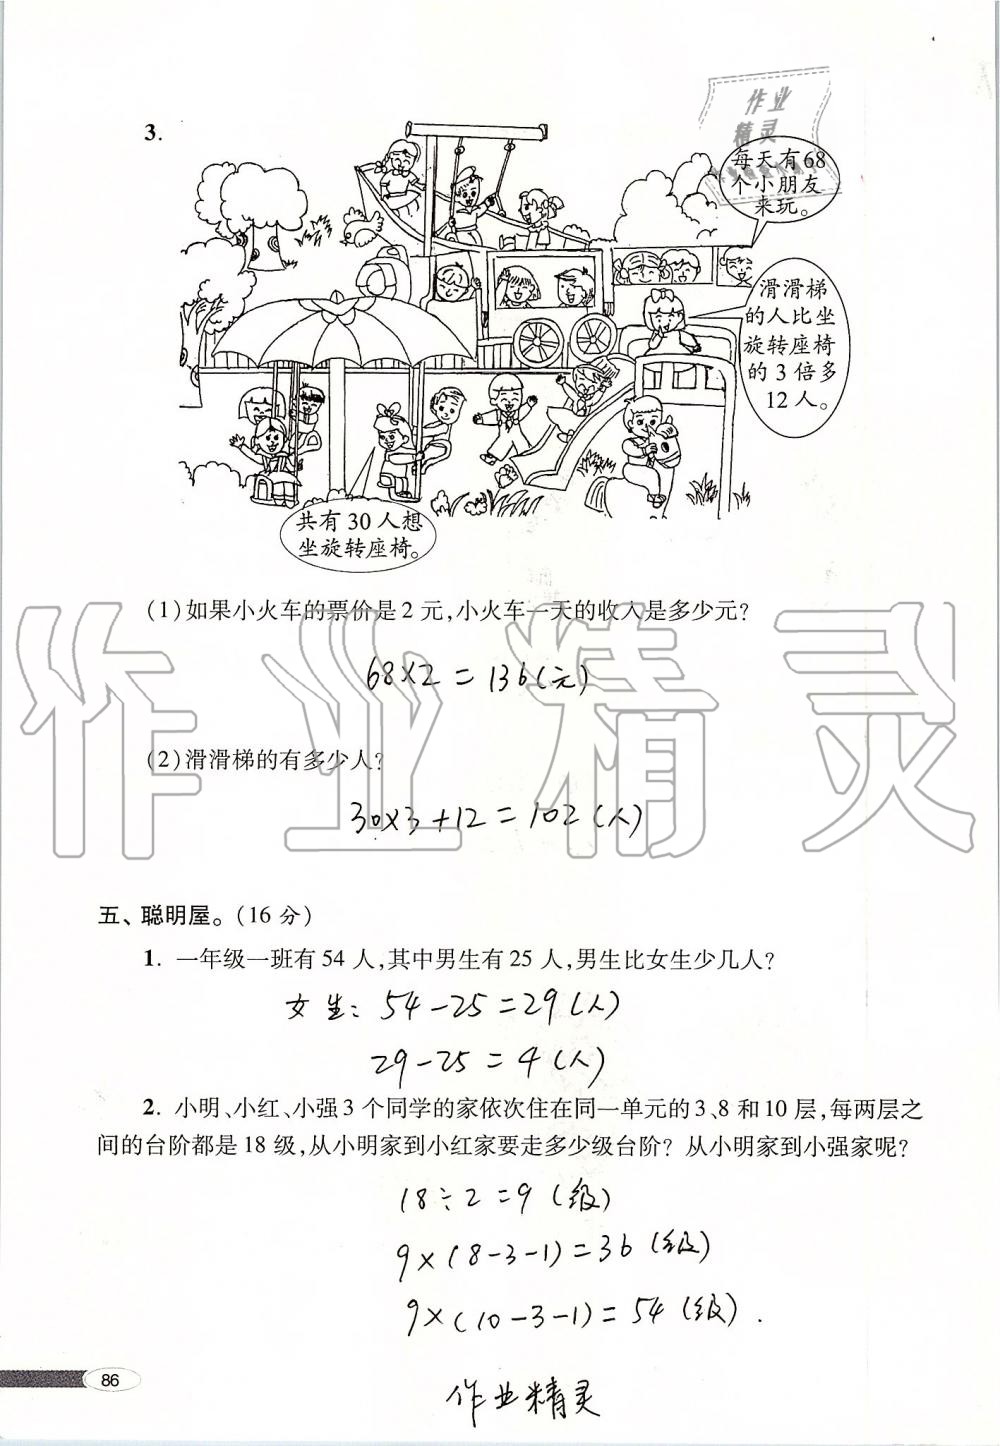 作业
精灵
3.
每天有68
个小朋友
来玩。
滑滑梯
的人比坐
旋转座椅
的3倍多
12人。
共有30人想
坐旋转座椅。
(1)如果小火车的票价是2元,小火车一天的收入是多少元?
68×2=136(元)
(2)滑滑梯的有多少人?
30×3+12=102(人)
作业精灵
五、聪明屋。(16分)
1. 一年级一班有54人,其中男生有25人,男生比女生少几人?
女生:54-25=29(人)
29-25=4(人)
2. 小明、小红、小强3个同学的家依次住在同一单元的3、8和10层,每两层之
间的台阶都是18级,从小明家到小红家要走多少级台阶? 从小明家到小强家呢?
18÷2=9(级)
9×(8-3-1)=36(级)
9×(10-3-1)=54(级).
86
作业精灵